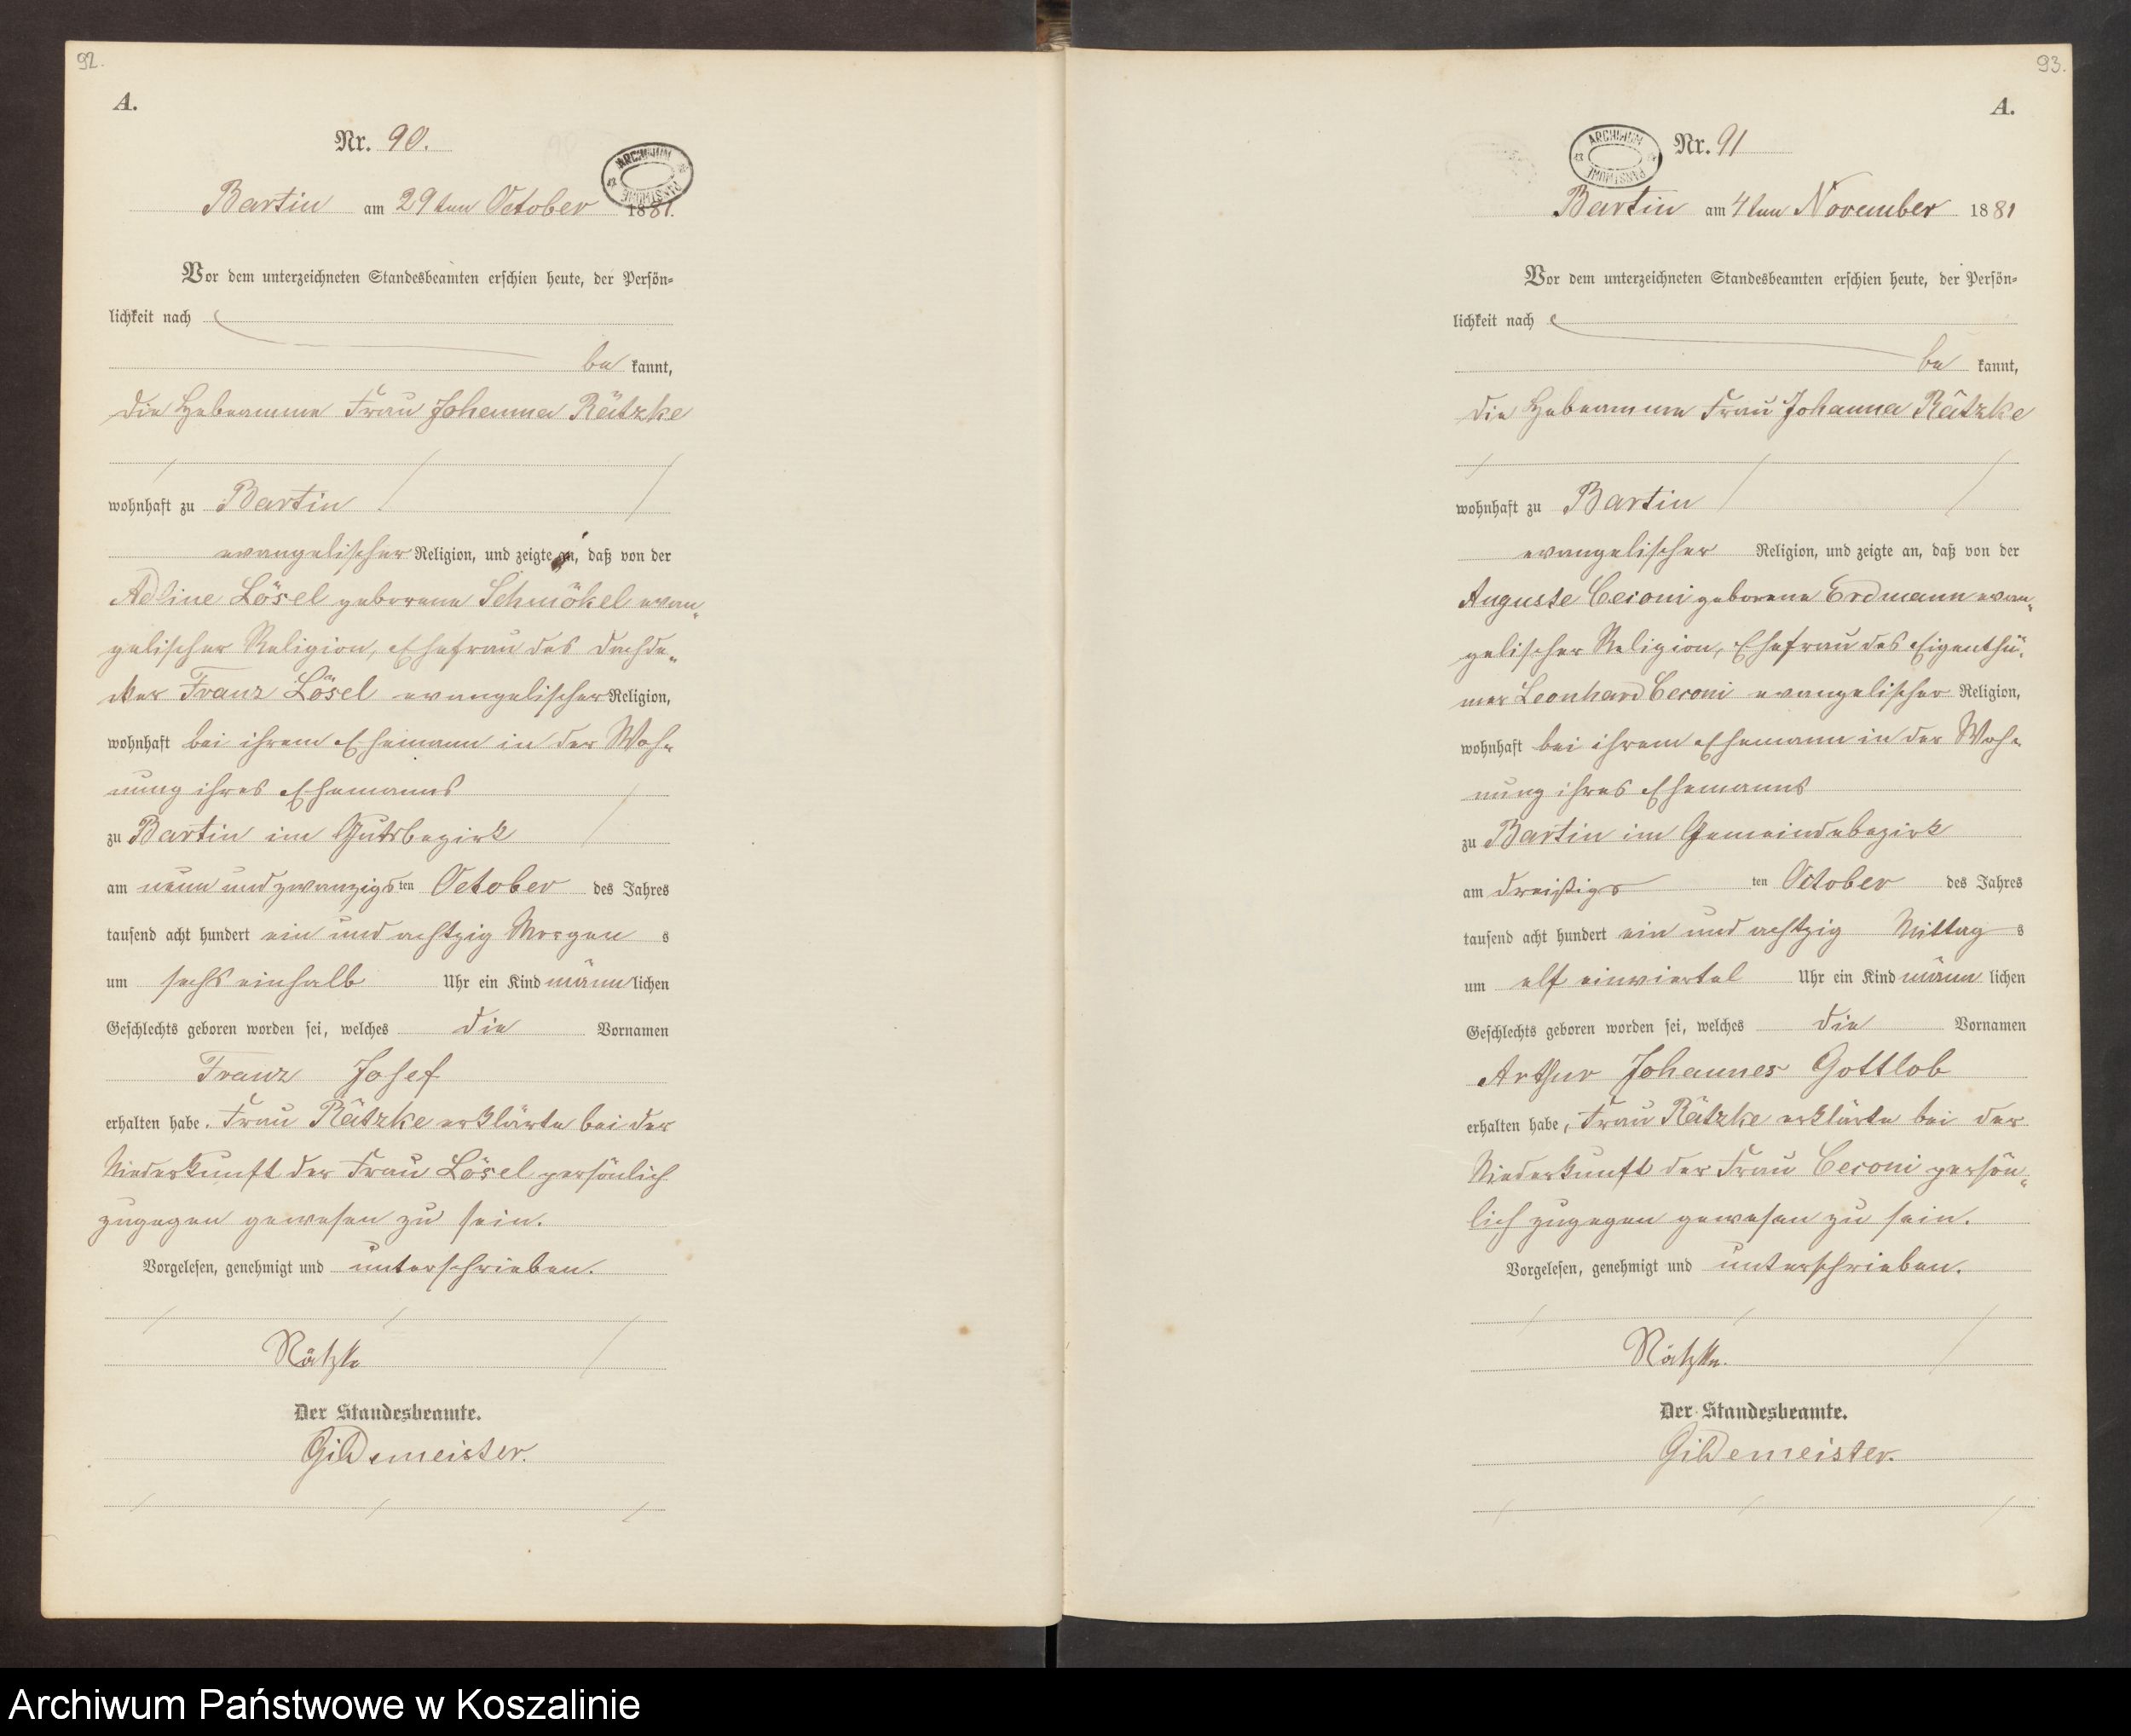 92.
A.
Nr. 90.
ARCHIWUM PAŃSTWOWE
Bartin am 29ten October 1881.
Vor dem unterzeichneten Standesbeamten erschien heute, der Persön=
lichkeit nach
be kannt,
die Hebeamme Frau Johanna Rätzke
wohnhaft zu Bartin
evangelischer Religion, und zeigte an, daß von der
Adline Lösel geborene Schmökel evan„
gelischer Religion, Ehefrau des Dachde„
cker Franz Lösel evangelischer Religion,
wohnhaft bei ihrem Ehemann in der Woh„
nung ihres Ehemanns
zu Bartin im Gutsbezirk
am neun und zwanzigs ten October des Jahres
tausend acht hundert ein und achtzig Morgen s
um sechs einhalb Uhr ein Kind männ lichen
Geschlechts geboren worden sei, welches die Vornamen
Franz Josef
erhalten habe. Frau Rätzke erklärte bei der
Niederkunft der Frau Lösel persönlich
zugegen gewesen zu sein.
Vorgelesen, genehmigt und unterschrieben.
Rätzke
Der Standesbeamte.
Gildemeister.
93.
A.
ARCHIWUM PAŃSTWOWE
Nr. 91
Bartin am 4ten November 1881
Vor dem unterzeichneten Standesbeamten erschien heute, der Persön=
lichkeit nach
be kannt,
die Hebeamme Frau Johanna Rätzke
wohnhaft zu Bartin
evangelischer Religion, und zeigte an, daß von der
Auguste Ceconi geborene Erdmann evan„
gelischer Religion, Ehefrau des Eigenthü„
mer Leonhard Ceconi evangelischer Religion,
wohnhaft bei ihrem Ehemann in der Woh„
nung ihres Ehemanns
zu Bartin im Gemeindebezirk
am dreißigs ten October des Jahres
tausend acht hundert ein und achtzig Mittag s
um elf einviertel Uhr ein Kind männ lichen
Geschlechts geboren worden sei, welches die Vornamen
Arthur Johannes Gottlob
erhalten habe, Frau Rätzke erklärte bei der
Niederkunft der Frau Ceconi persön„
lich zugegen gewesen zu sein.
Vorgelesen, genehmigt und unterschrieben.
Rätzke.
Der Standesbeamte.
Gildemeister.
Archiwum Państwowe w Koszalinie